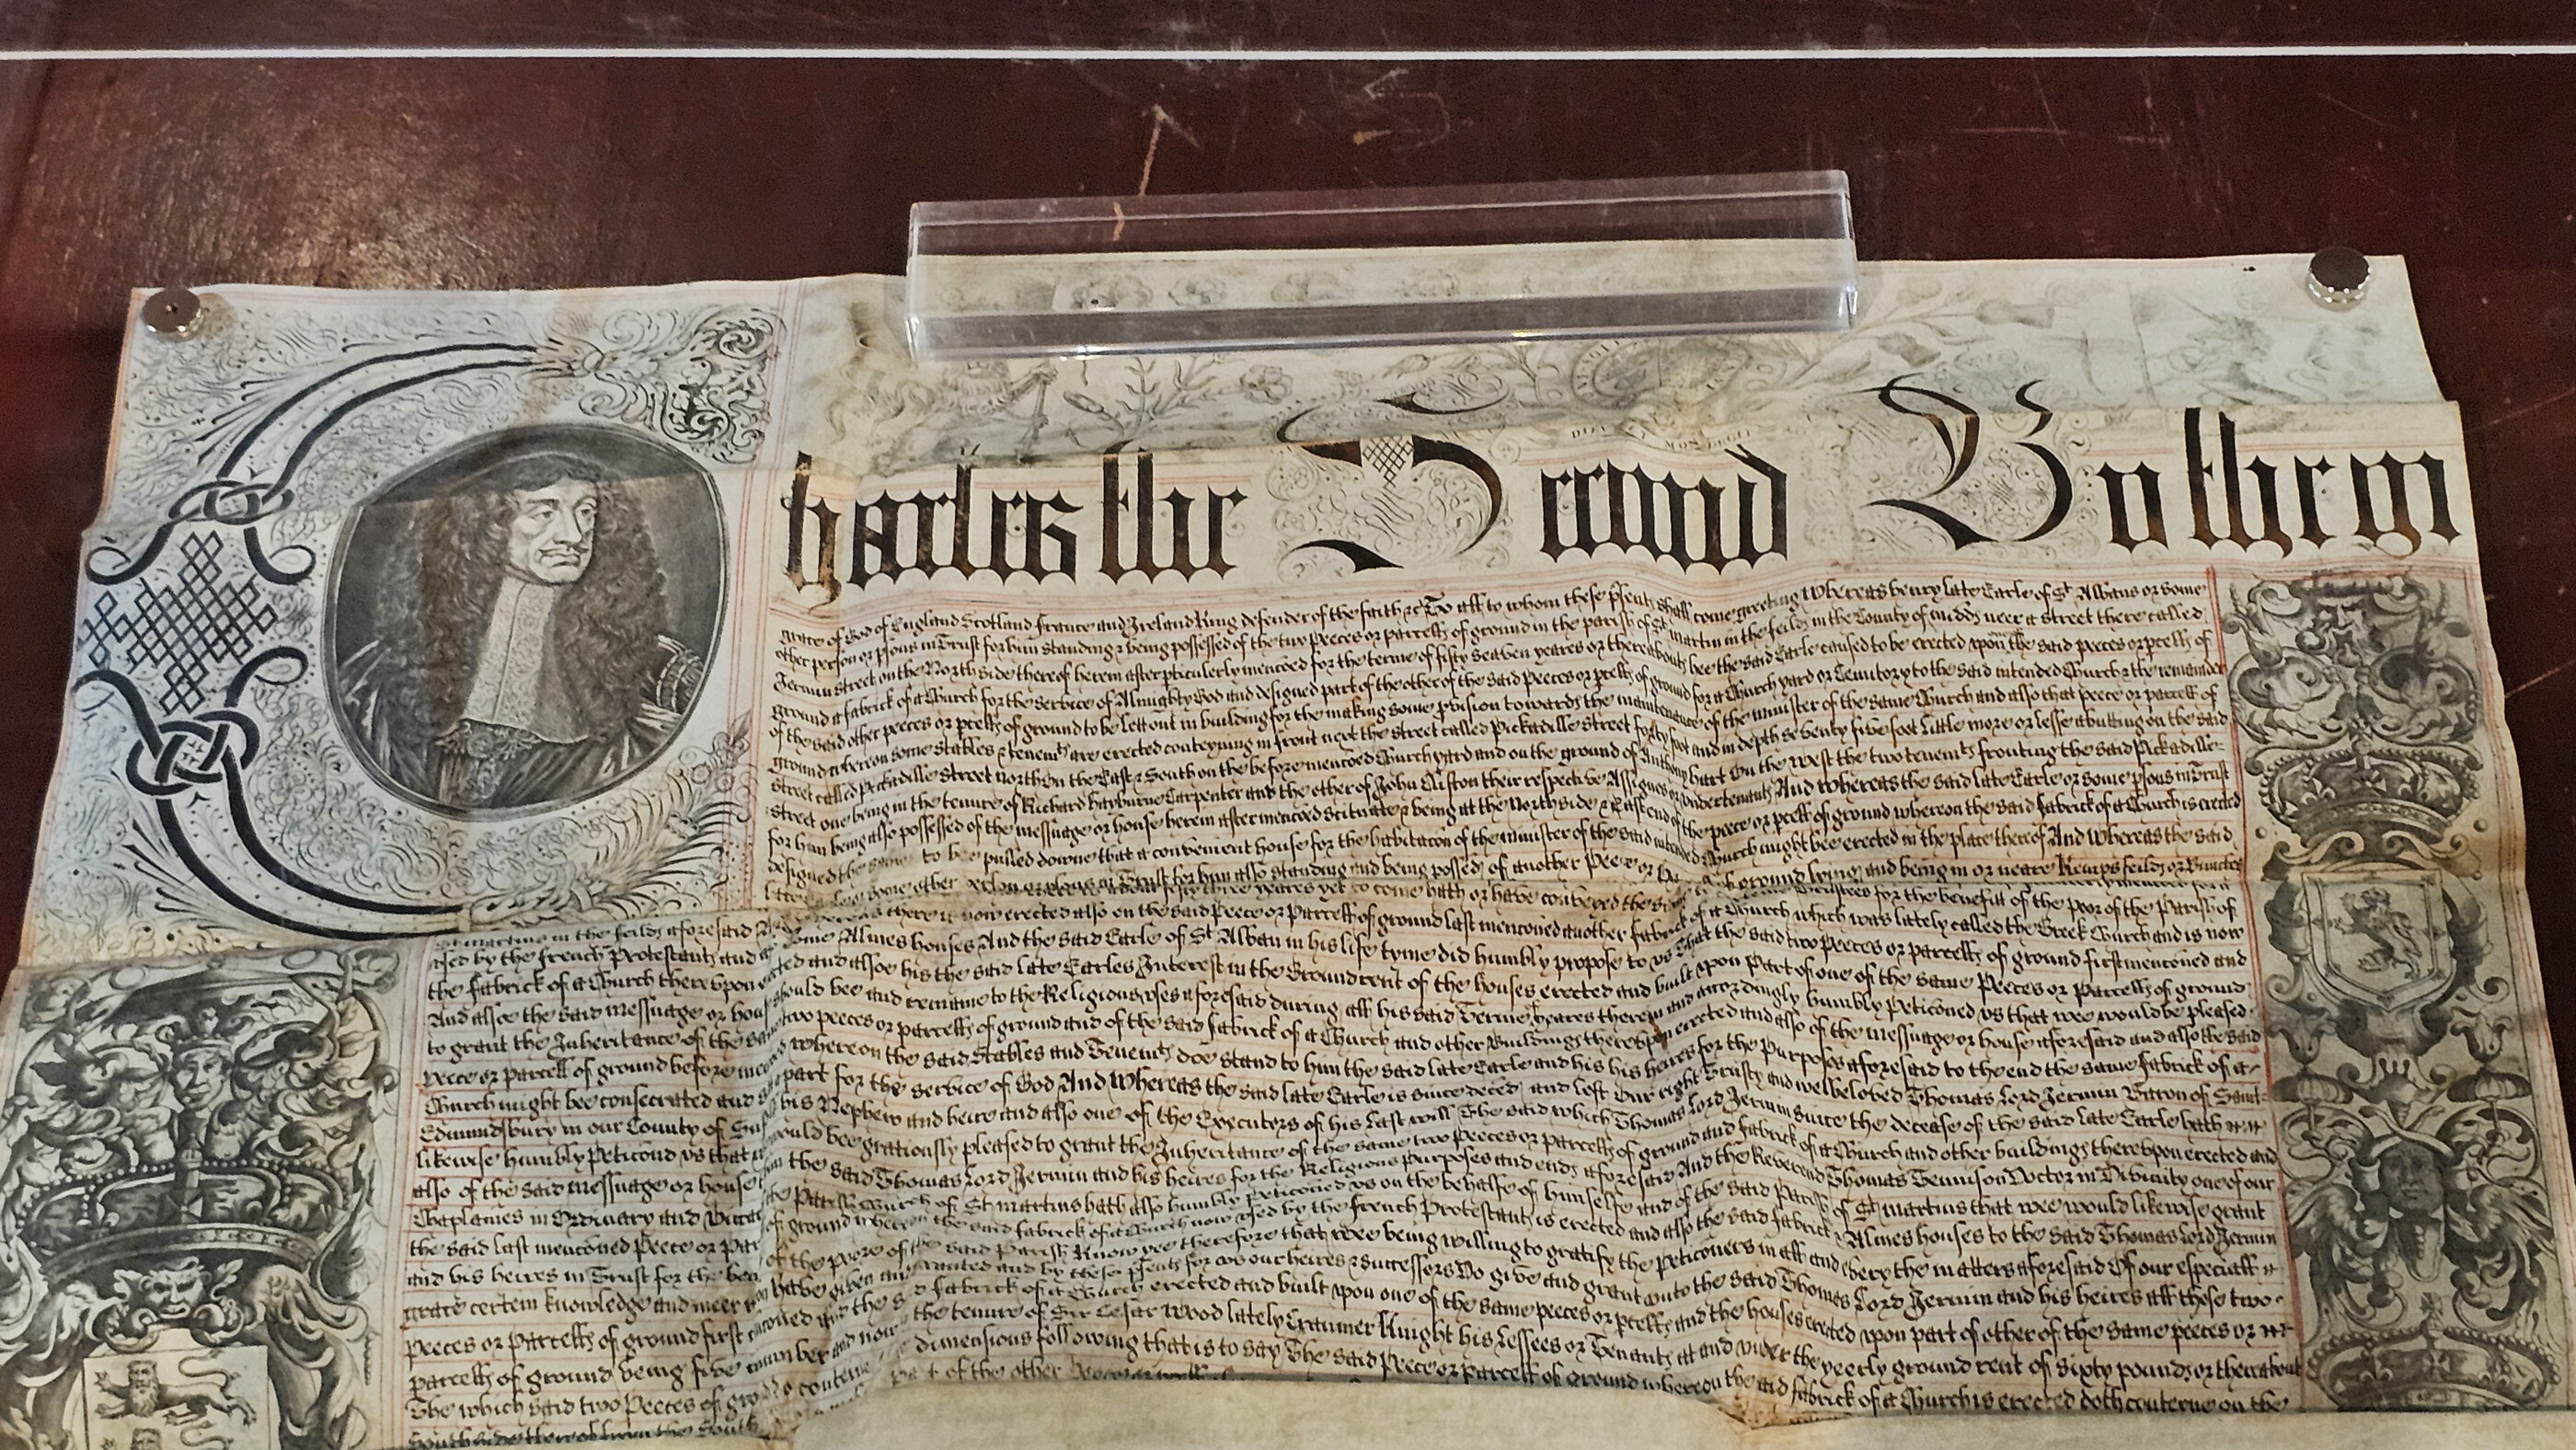 Charles the Second By the
grace of God of England Scotland France and Ireland King defender of the faith &c To all to whom these psents shall come greeting Whereas henry late Earle of St Albans or some
other person or psons in Trust for him standing & being possessed of the two peeces or parcells of ground in the parish of St martin in the feilds in the County of midds neer a street there called
Jermin street on the North side thereof herein after pticulerly menconed for the terme of fifty seaben yeares or thereabouts hee the said Earle caused to be erected upon the said peeces or pcells of
ground a fabrick of a Church for the service of Almighty God and designed part of the other of the said peeces or pcells of ground for a Church yard or Cemitory to the said intended Church & the remainder
of the said other peeces or pcells of ground to be lett out in building for the making some pvision towards the maintenance of the minister of the same Church and also that peece or parcell of
ground whereon some stables & tenemts are erected conteyning in front next the street called Pickadille street forty foot and in depth seventy five foot little more or lesse abutting on the said
street called Pickadille street North On the East & South on the before menconed Church yard and on the ground of Anthony hart On the west the two tenemts fronting the said Pickadille
street one being in the tenure of Richard hayburne Carpenter and the other of John Auston their respective Assignes or undertenants And whereas the said late Earle or some psons in Trust
for him being also possessed of the messuage or house herein after menconed scituate & being at the North side & East end of the peece or pcell of ground whereon the said fabrick of a Church is erected
designed the same to bee pulled downe that a convenient house for the habitacon of the minister of the said intended Church might bee erected in the place thereof And Whereas the said
other person or psons in Trust for him also standing and being possed of another Peece or ground lying and being in or neare Kemps feilds or Bunches
yeares yet to come hath or have conveyed the Trustees for the benefitt of the Poor of the Parish of
St martins in the feilds aforesaid there is now erected also on the said Peece or Parcell of ground last menconed another fabrick of a Church which was lately called the Greek Church and is now
used by the french Protestants and Almes houses And the said Earle of St Alban in his life tyme did humbly propose to us That the said two Peeces or parcells of ground first menconed and
the fabrick of a Church thereupon and alsoe his the said late Earles Interest in the Groundrent of the houses erected and built upon Part of one of the same Peeces or Parcells of ground
And alsoe the said messuage or should bee and remaine to the Religious uses aforesaid during all his said Terme yeares therein and accordingly humbly Peticoned us that wee would be pleased
to grant the Inheritance of the two peeces or parcells of ground and of the said fabrick of a Church and other Buildings thereupon erected and also of the messuage or house aforesaid and also the said
peece or parcell of ground before whereon the said Stables and Tenemts doe stand to him the said late Earle and his heires for the Purposes aforesaid to the end the same fabrick of a
Church might bee consecrated and part for the service of God And Whereas the said late Earle is since deced and left Our right Trusty and welbeloved Thomas Lord Jermin Baron of Saint
Edmundsbury in our County of his Nephew and heire and also one of the Executors of his Last will The said which Thomas Lord Jermin since the decease of the said late Earle hath
likewise humbly Peticond us that would bee gratiously pleased to grant the Inheritance of the same two peeces or parcells of ground and fabrick of a Church and other buildings thereupon erected and
also of the said messuage or house the said Thomas Lord Jermin and his heires for the Religious purposes and ends aforesaid And the Reverend Thomas Tennison Doctor in Divinity one of our
Chaplaines in Ordinary and Parish Church of St martins hath also humbly peticoned us on the behalfe of himselfe and of the said Parish of St martins that wee would likewise grant
the said last menconed Peece or of ground whereon the said fabrick of a Church now used by the french Protestants is erected and also the said fabrick Almes houses to the said Thomas Lord Jermin
and his heires in Trust for the of the poore of the said Parish Know yee therefore that wee being willing to gratify the peticoners in all and every the matters aforesaid Of our especiall
grace certein knowledge and meer have given and granted and by these psents for us our heires & successors Do give and grant unto the said Thomas Lord Jermin and his heires all those two
peeces or Parcells of ground first the said fabrick of a Church erected and built upon one of the same peeces or pcells and the houses erected upon part of other of the same peeces or
parcells of ground being five number and now the tenure of Sir Cesar Wood lately Cranmer Knight his Lessees or Tenants at and under the yeerly ground rent of sixty pounds or thereabout
The which said two Peeces of dimencions following that is to say The said Peece or Parcell of Ground whereon the said fabrick of a Church is erected doth conteine on the
part of the other